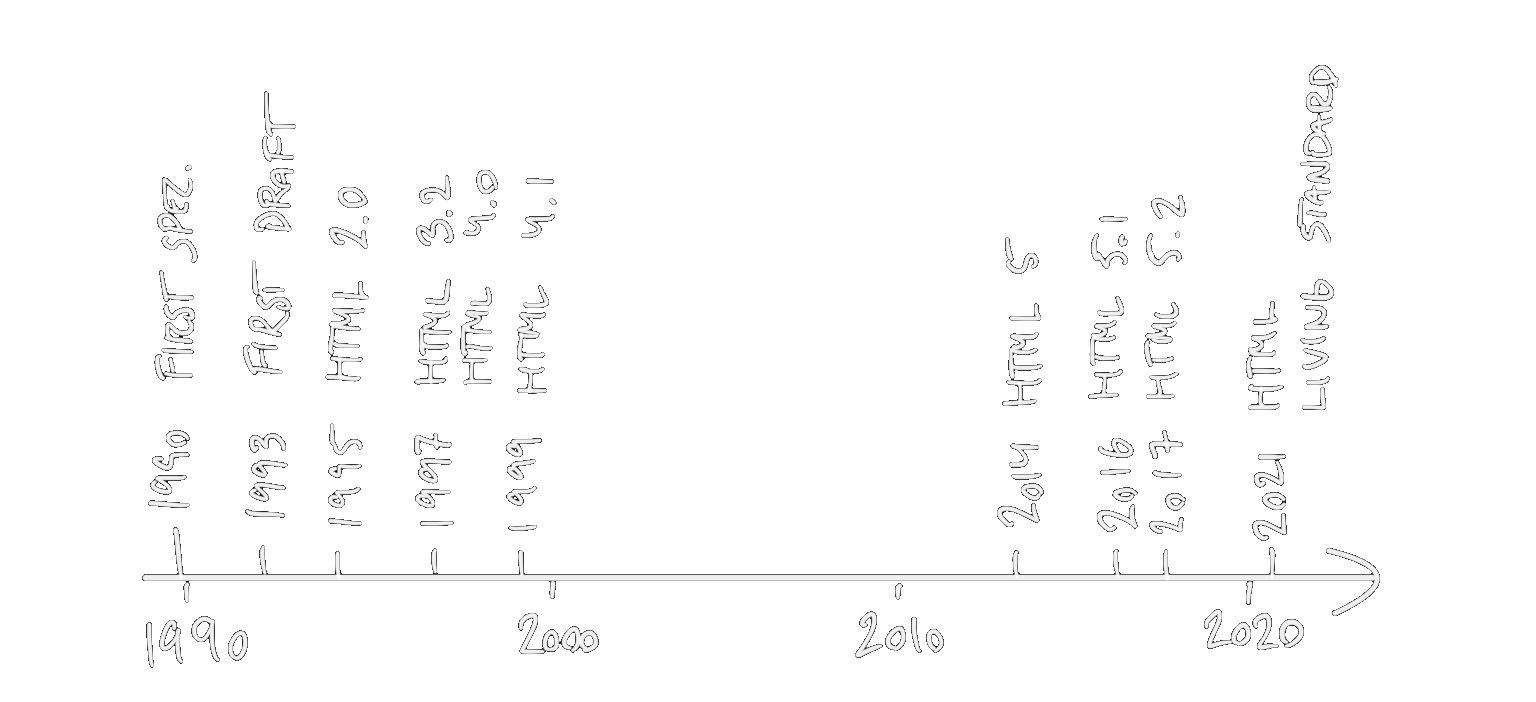 1990 FIRST SPEZ.
1993 FIRST DRAFT
1995 HTML 2.0
1997 HTML 3.2
HTML 4.0
1999 HTML 4.1
2014 HTML 5
2016 HTML 5.1
2017 HTML 5.2
2021 HTML
LIVING STANDARD
1990 2000 2010 2020